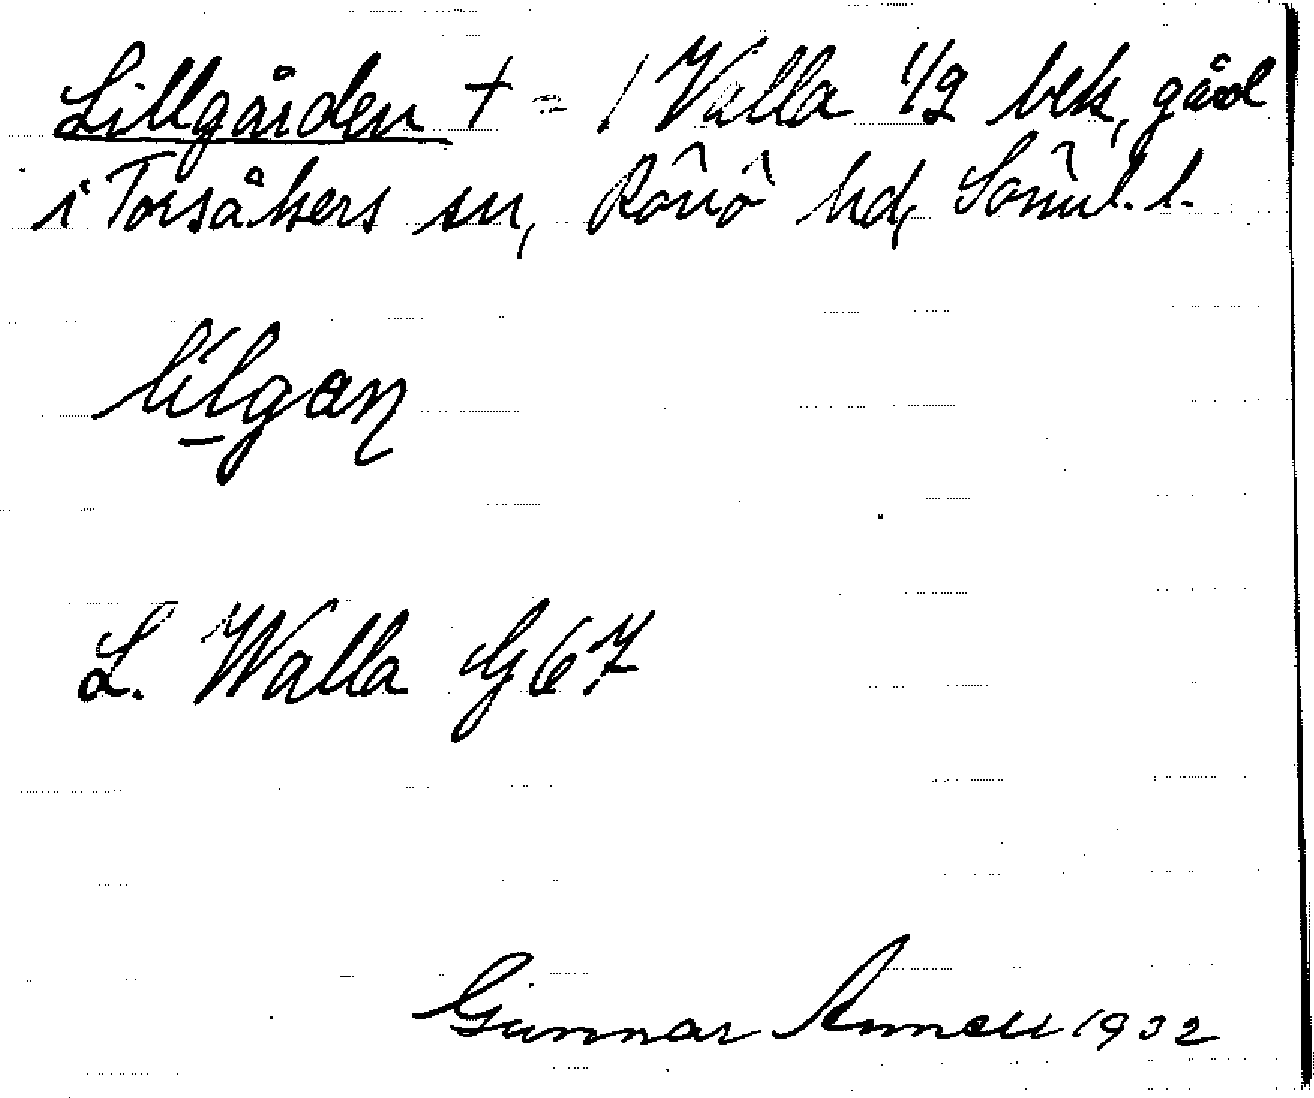 Lillgården † = 1 Valla 1/2 bek. gård
i Torsåkers sn, Rönö hd, Söml. l.
lílgan
L. Walla G 67
Gunnar Annell 1932